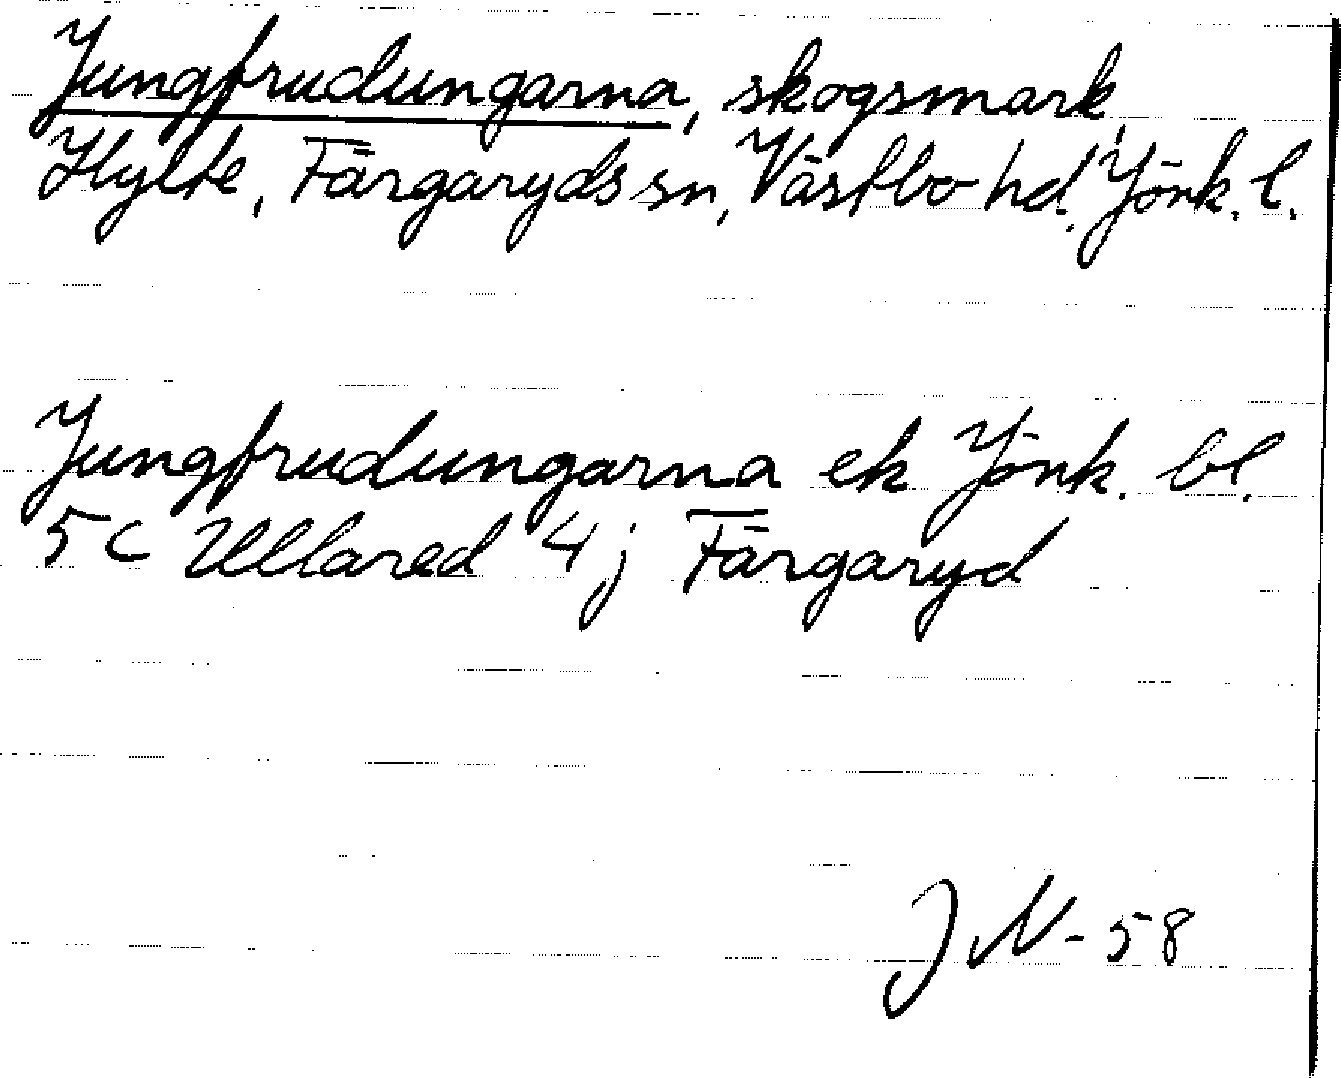 Jungfrudungarna, skogsmark,
Hylte, Färgaryds sn, Västbo hd. Jönk. l.
Jungfrudungarna ek Jönk. bl.
5C Ullared 4j Färgaryd
JN-58